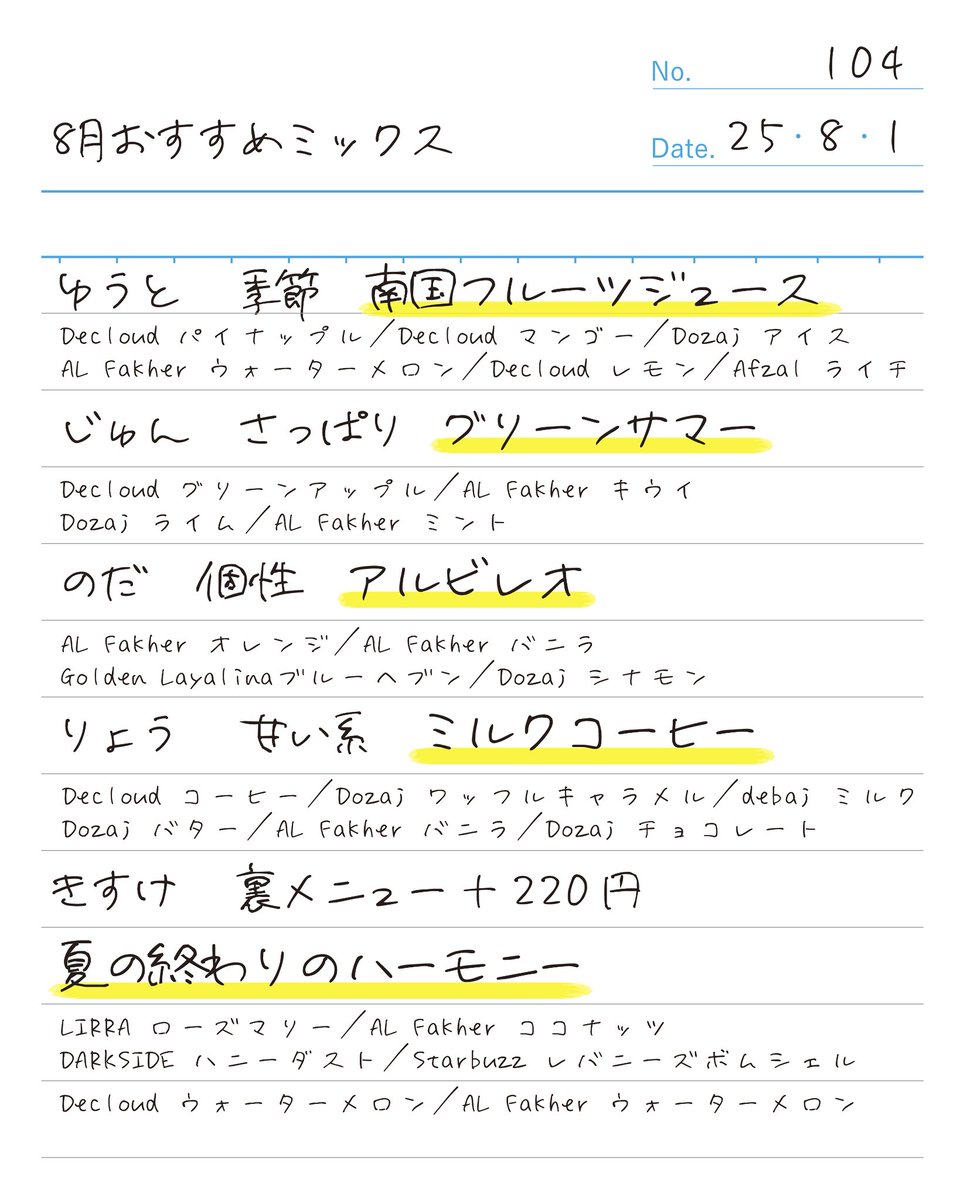 No. 104
8月おすすめミックス
Date. 25・8・1
ゆうと 季節 南国フルーツジュース
Decloud パイナップル/Decloud マンゴー/Dozaj アイス
AL Fakher ウォーターメロン/Decloud レモン/Afzal ライチ
じゅん さっぱり グリーンサマー
Decloud グリーンアップル/AL Fakher キウイ
Dozaj ライム/AL Fakher ミント
のだ 個性 アルビレオ
AL Fakher オレンジ/AL Fakher バニラ
Golden Layalinaブルーヘブン/Dozaj シナモン
りょう 甘い系 ミルクコーヒー
Decloud コーヒー/Dozaj ワッフルキャラメル/debaj ミルク
Dozaj バター/AL Fakher バニラ/Dozaj チョコレート
きすけ 裏メニュー+220円
夏の終わりのハーモニー
LIRRA ローズマリー/AL Fakher ココナッツ
DARKSIDE ハニーダスト/Starbuzz レバニーズボムシェル
Decloud ウォーターメロン/AL Fakher ウォーターメロン